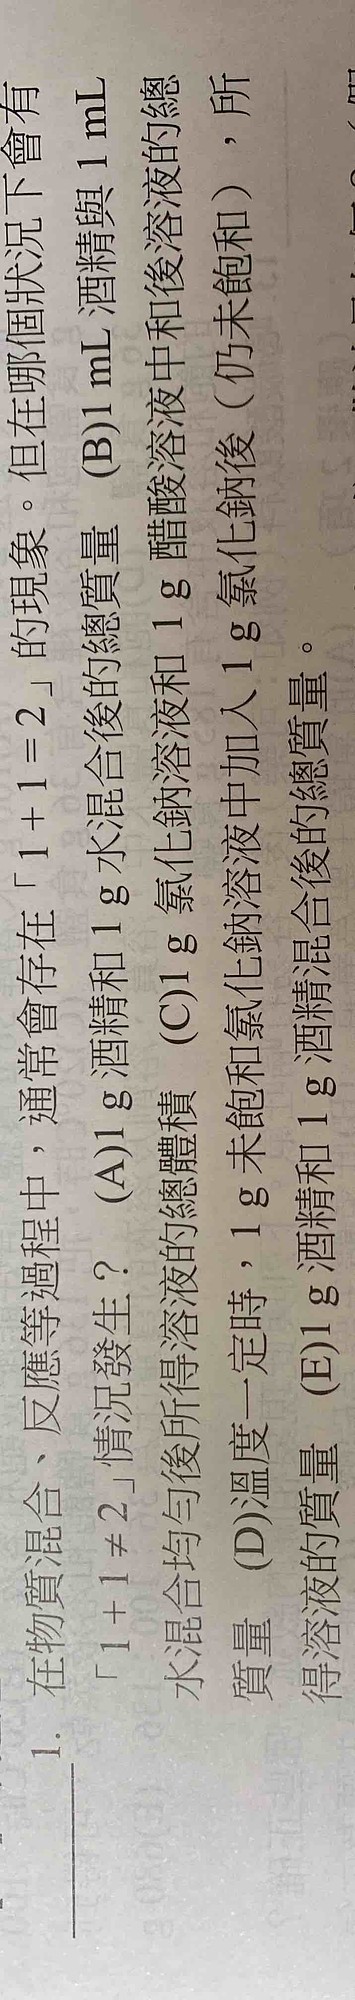 1. 在物質混合、反應等過程中，通常會存在「1 + 1 = 2」的現象。但在哪個狀況下會有
「1 + 1 ≠ 2」情況發生？ (A)1 g 酒精和 1 g 水混合後的總質量 (B)1 mL 酒精與 1 mL
水混合均勻後所得溶液的總體積 (C)1 g 氯化鈉溶液和 1 g 醋酸溶液中和後溶液的總
質量 (D)溫度一定時，1 g 未飽和氯化鈉溶液中加入 1 g 氯化鈉後（仍未飽和），所
得溶液的質量 (E)1 g 酒精和 1 g 酒精混合後的總質量。